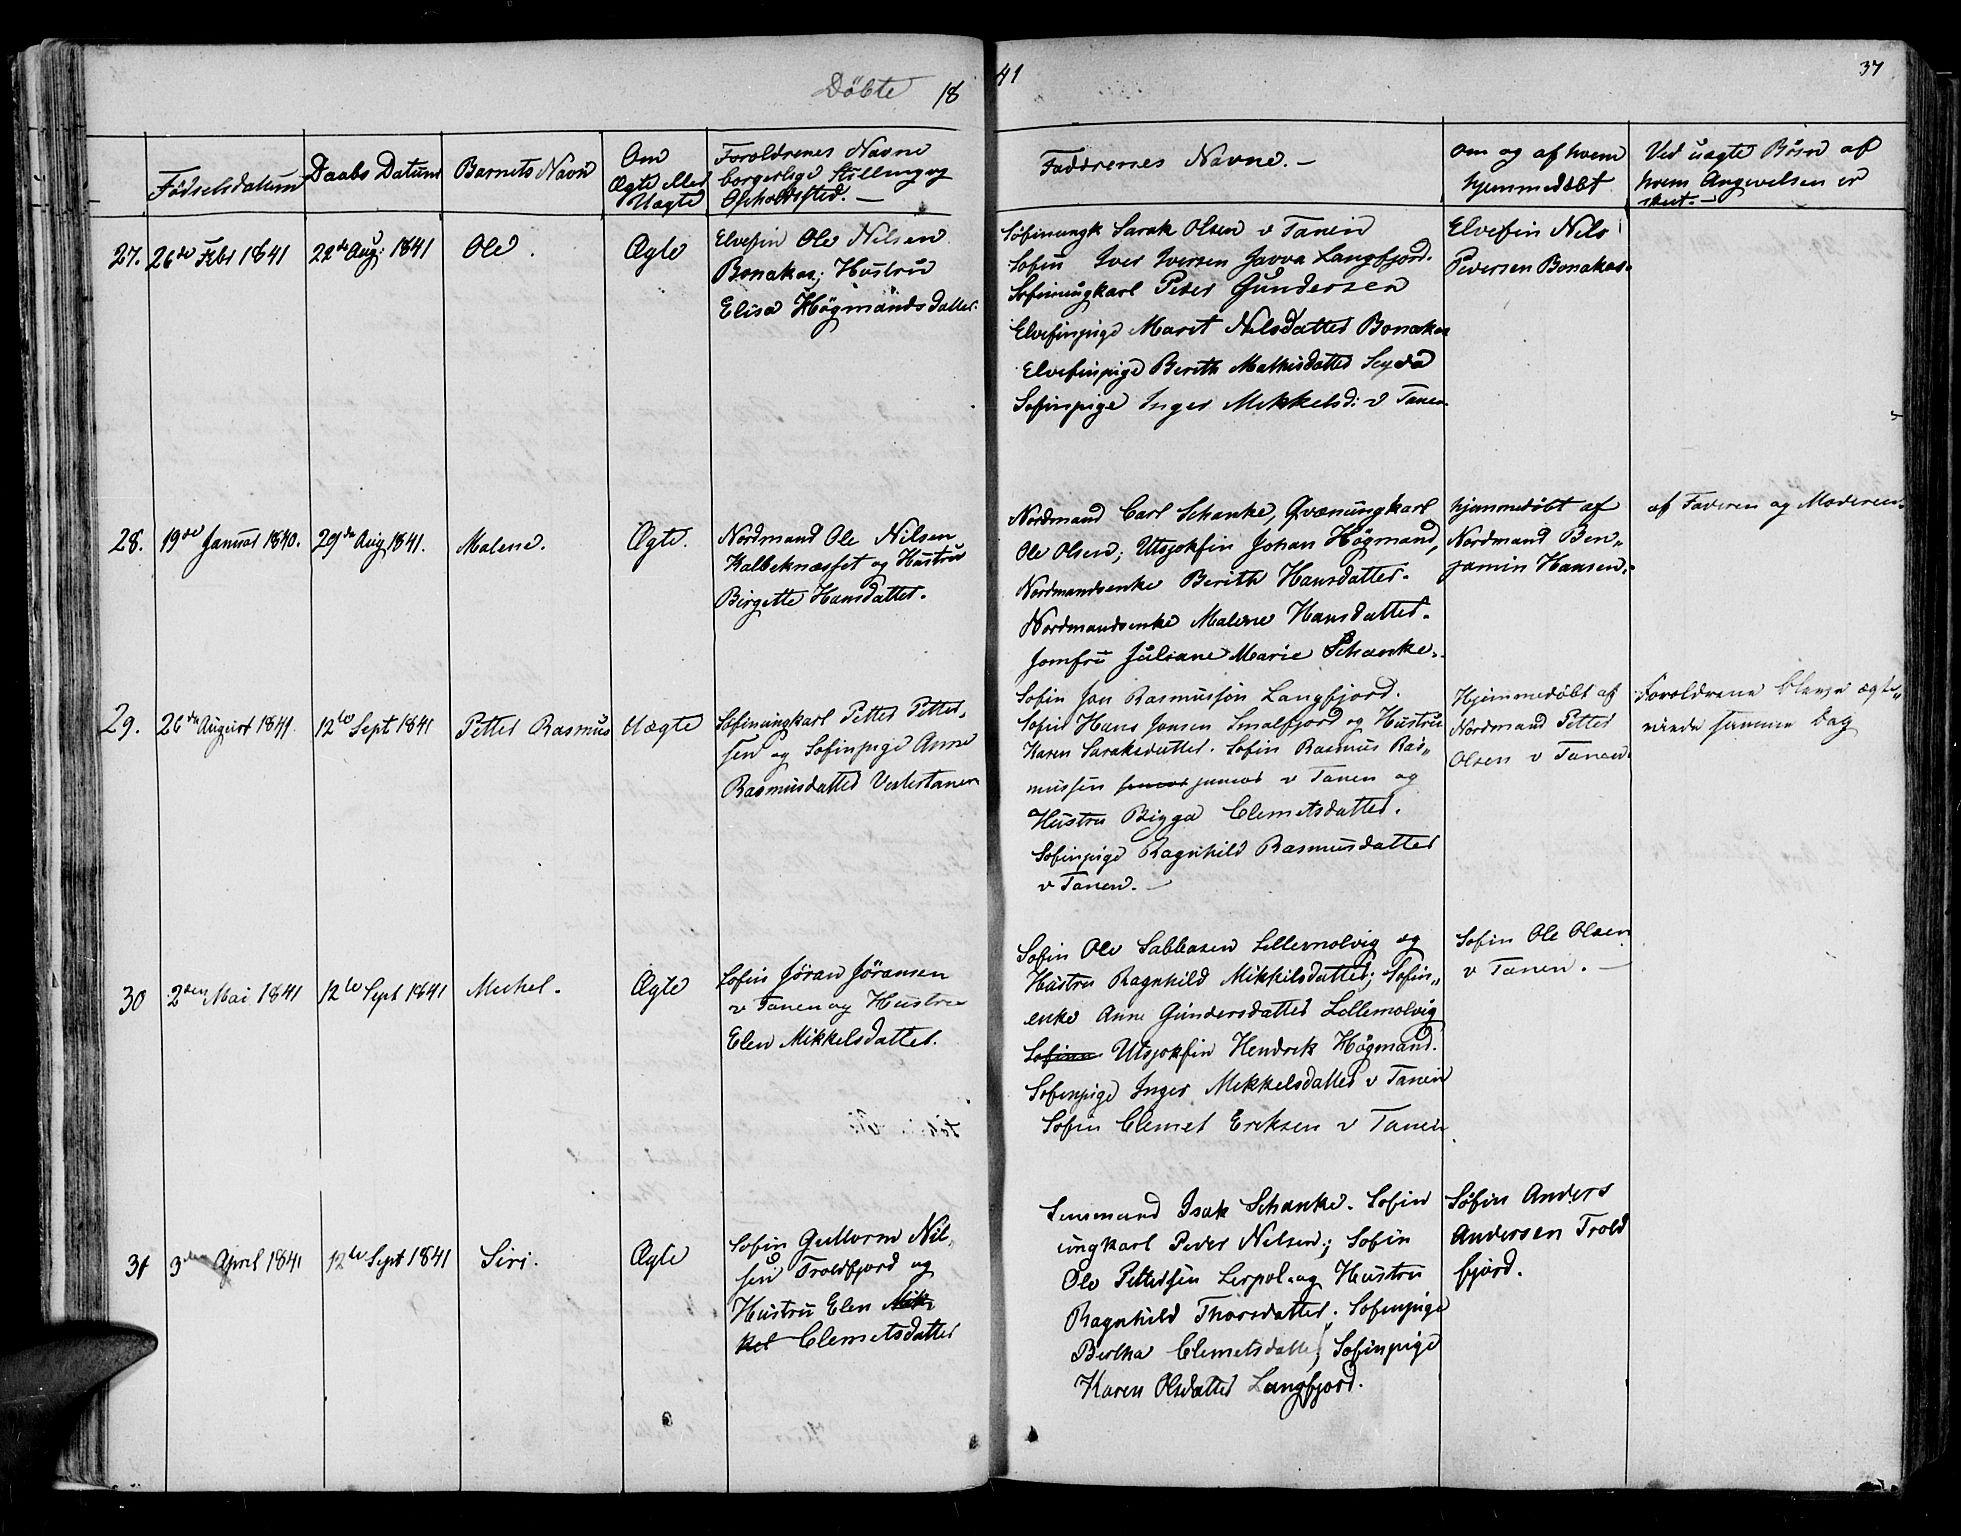 Döbte 18
41
37
Födselsdatum
Daabs Datum
Barnets Navn
Om
Ægte eller
Uægte
Foroldrenes Navne
borgerlige Stilling og
Opholdsted. —
Faddrenes Navne. —
om og af hvem
hjemmedöbt
Ved uægte Börn af
hvem Angivelsen er
skeet. —
27. 26de Febr 1841
22de Aug: 1841
Ole.
Ægte
Elvefin Ole Nilsen
Bonakas; Hustru
Elisa Högmandsdatter.
Söfinungk Sarak Olsen v Tanen
Sofin Iver Iversen Javva Langfjord.
Sofinungkarl Peder Gundersen
Elvefinpige Marit Nilsdatter Bonakas
Elvefinpige Berith Mathisdatter Seyda
Sofinpige Inger Mikkelsd: v Tanen
Elvefin Nils
Pedersen Bonakas.
28. 19de Januar 1840.
29de Aug 1841.
Malene.
Ægte.
Nordmand Ole Nilsen
Kalbeknæsset og Hustru
Birgette Hansdatter.
Nordmand Carl Schanke, Qvænungkarl
Ole Olsen; Utsjokfin Johan Högmand,
Nordmandsenke Berith Hansdatter.
Nordmandsenke Malene Hansdatter.
Jomfru Juliane Marie Schanke.
hjemmedöbt af
Nordmand Ben„
jamin Hansen.
af Faderen og Moderen.
29. 26de August 1841.
12te Sept 1841
Petter Rasmus
Uægte
Sofinungkarl Petter Petter„
sen og Sofinpige Anne
Rasmusdatter Vestertanen
Sofin Jon Rasmussen Langfjord.
Sofin Hans Jonsen Smalfjord og Hustru
Karen Saraksdatter. Sofin Rasmus Ras„
mussen senior junior v Tanen og
Hustru Bigga Clemetsdatter.
Sofinpige Ragnhild Rasmusdatter
v Tanen. —
Hjemmedöbt af
Nordmand Petter
Olsen v Tanen.
Foroldrene bleve ægte„
viede samme Dag
30 2den Mai 1841
12te Sept 1841
Mickel.
Ægte
Sofin Jöran Jöransen
v Tanen og Hustru
Elen Mikkelsdatter.
Sofin Ole Sabbasen Lillemolvig og
Hustru Ragnhild Mikkelsdatter; Sofin„
enke Anne Gundersdatter Lillemolvig
Sofinn Utsjokfin Hendrik Högmand.
Sofinpige Inger Mikkelsdatter v Tanen
Sofin Clemet Eriksen v Tanen
Sofin Ole Olsen
v Tanen. —
31 3den April 1841
12te Sept 1841
Siri.
Ægte
Sofin Guttorm Nil„
sen Troldfjord og
Hustru Elen Mik„
kel Clemetsdatter
Lensmand Isak Schanke. Sofin
ungkarl Peder Nilsen; Sofin
Ole Pettersen Lerpol. og Hustru
Ragnhild Thorsdatter. Sofinpige
Bertha Clemetsdatter; Sofinpige
Karen Olsdatter Langfjord.
Söfin Anders
Andersen Trold
fjord.